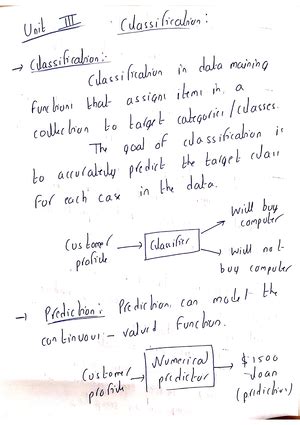 Unit III Classification:
→ Classification:-
Classification in data maining
functions that assigns items in a
collection to target categories/classes.
The goal of classification is
to accurately predict the target class
for each case in the data.
Customer profile → Classifier → Will buy computer
→ Will not buy computer
→ Prediction: Prediction can model the
continuous-valued function.
Customer profile → Numerical predictor → $1500 loan (prediction)